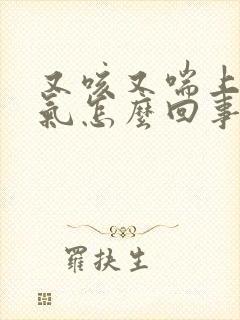 又咳又喘上
氣怎麼回事
羅扶生